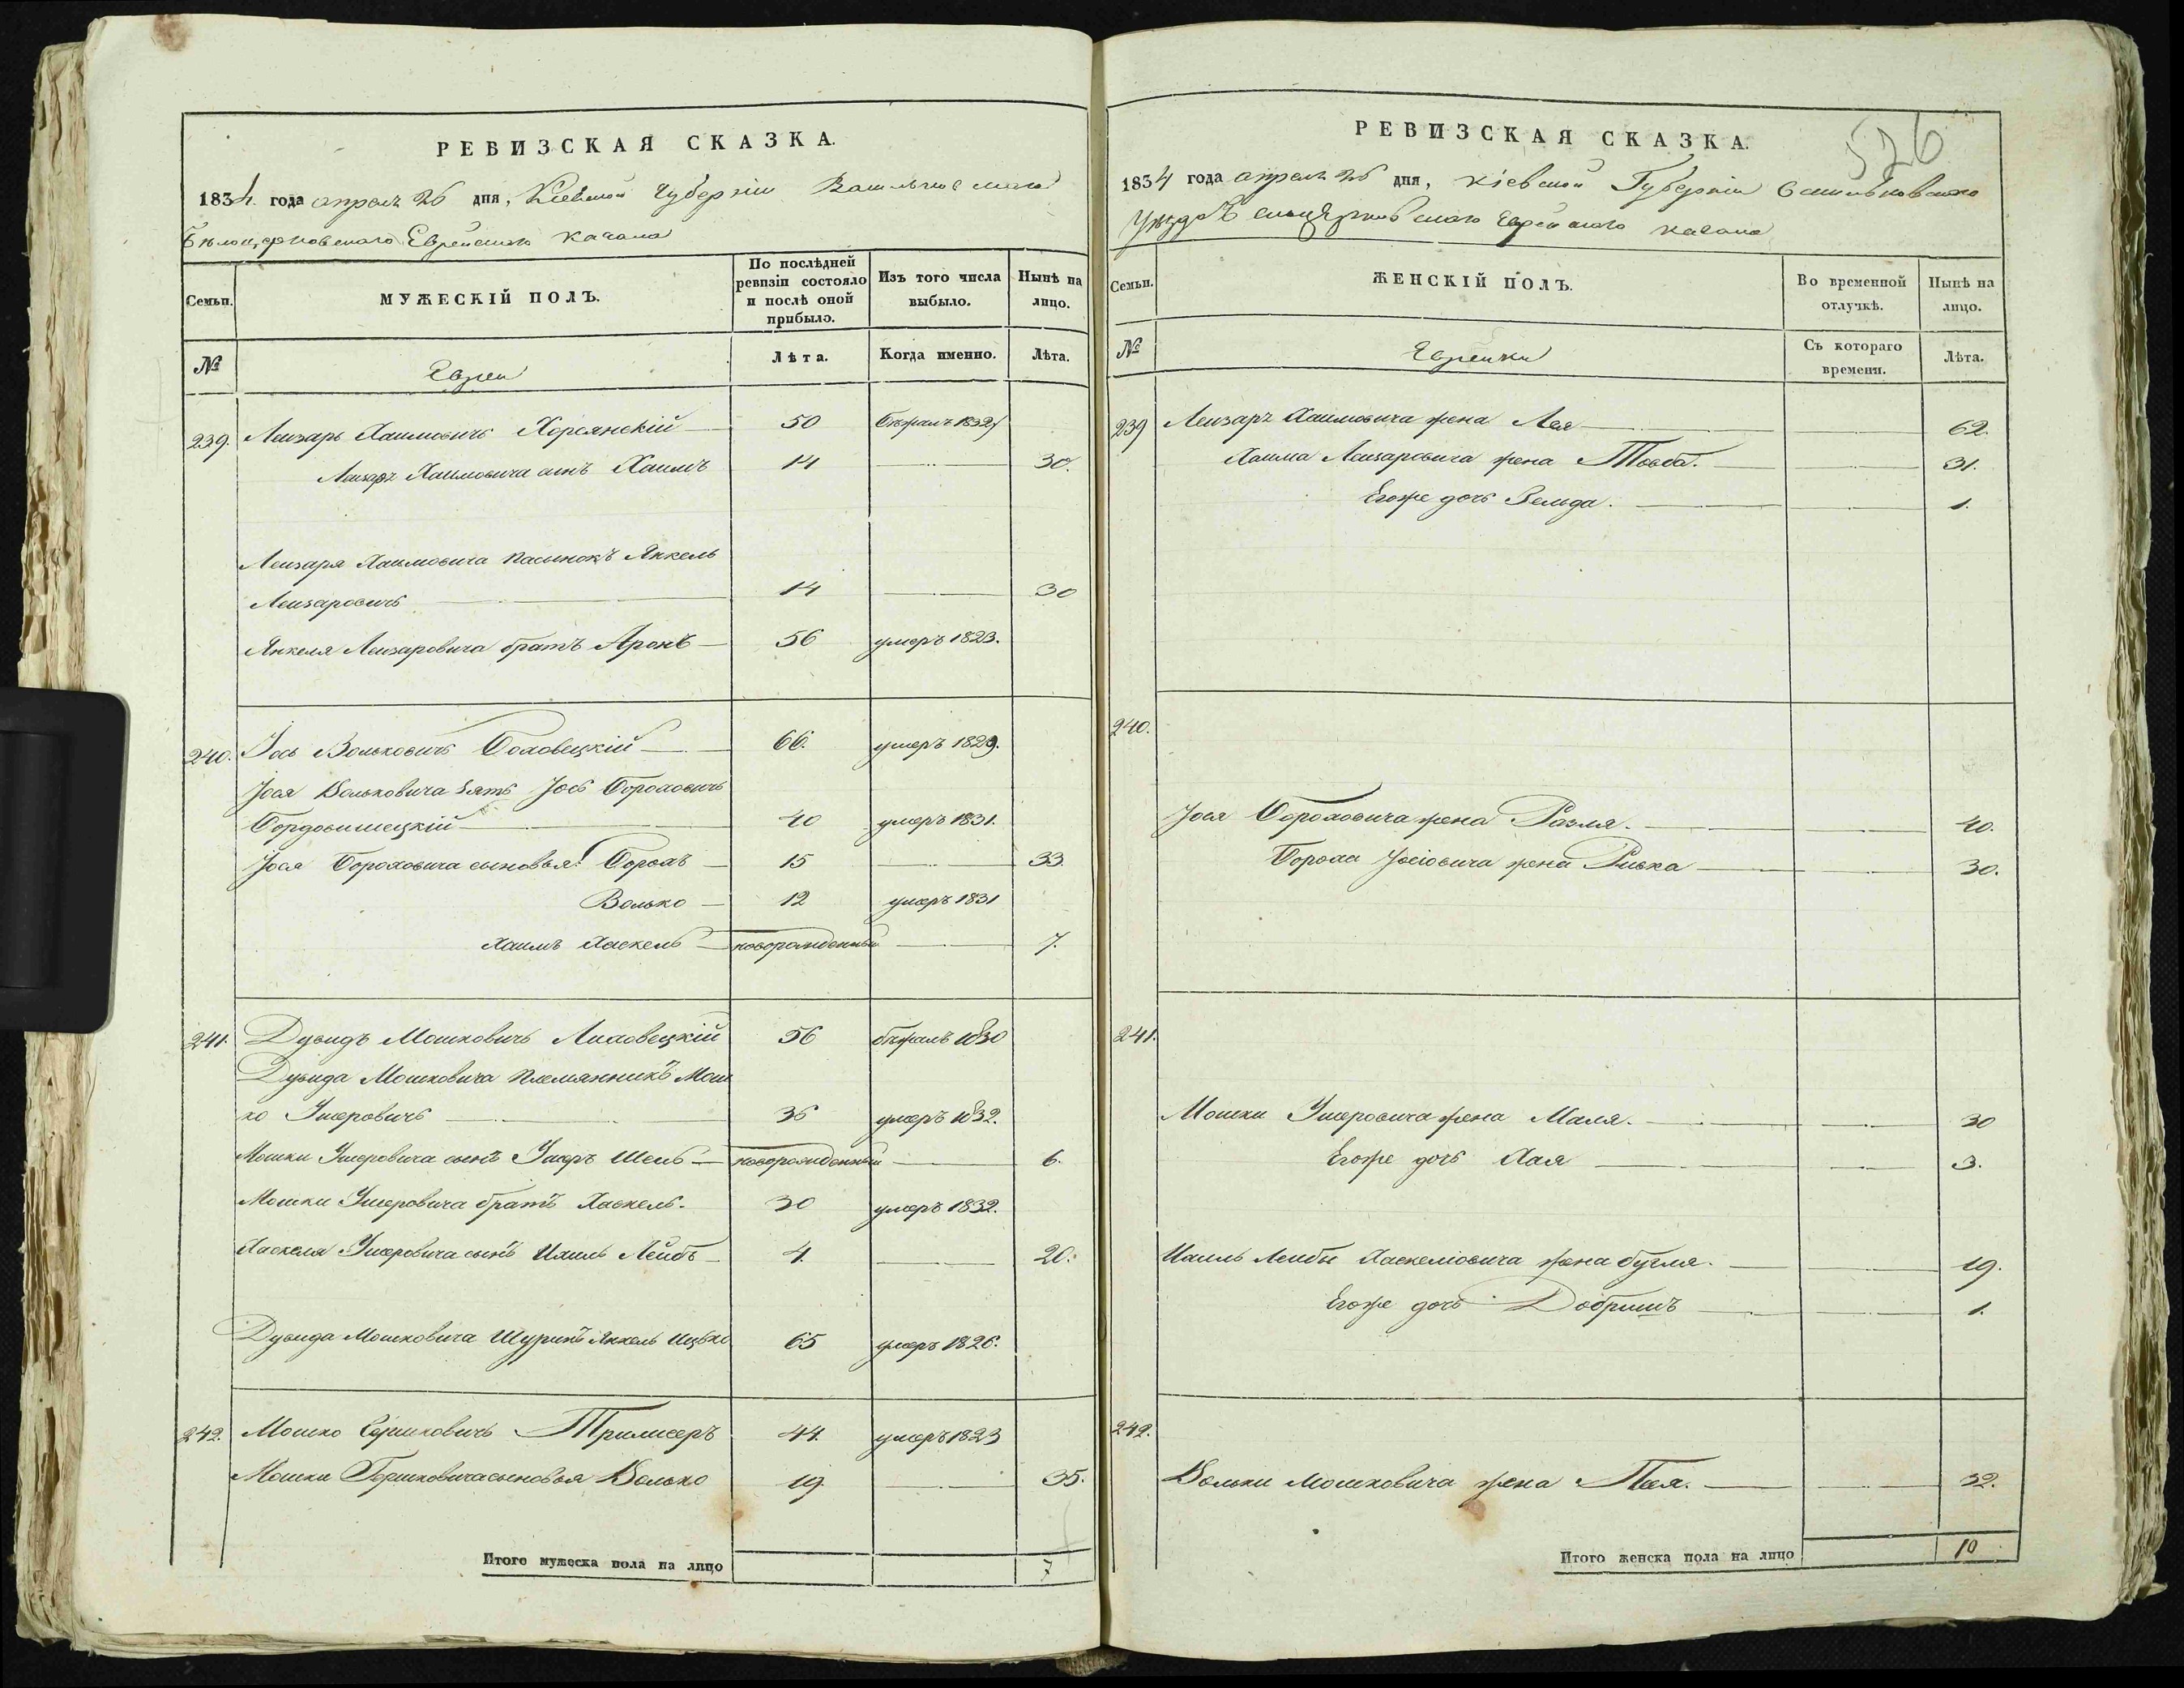 РЕВИЗСКАЯ СКАЗКА.
1834. года апреля 26 дня, Кіевской Губерніи Васильковскаго
Бѣлоцерковскаго Еврейскаго Кагала
Семьи.
МУЖЕСКІЙ ПОЛЪ.
По послѣдней ревизіи состояло и послѣ оной прибыло.
Изъ того числа выбыло.
Нынѣ на лицо.
№
Евреи
Лѣта.
Когда именно.
Лѣта.
239. Лейзарь Хаимовичъ Хорсянскій 50 Бѣжалъ 1832
Лейзаръ Хаимовича сынъ Хаимъ 14 30.
Лейзаря Хаимовича пасынокъ Янкель
Лейзаровичъ 14 30
Янкеля Лейзаровича братъ Аронъ 56 умеръ 1823.
240. Іось Вольковичъ Боховецкій 66. умеръ 1829.
Іося Вольковича зять Іось Бороховичъ
40 умеръ 1831.
Іося Бороховича сыновья: Борохъ 15 33
Волько 12 умеръ 1831
Хаимъ Хаскель новорожденный 7.
241. Дувидъ Мошковичъ Лиховецкій 56 бѣжалъ 1830
Дувида Мошковича племянникъ Мош
ко Умеровичъ 36 умеръ 1832.
Мошки Умеровича сынъ новорожденный 6.
Мошки Умеровича братъ Хаскель. 30 умеръ 1832.
Хаскеля Умеровича сынъ Лейбъ 4. 20.
Дувида Мошковича Шуринъ Янкель Ицько 65 умеръ 1826.
242. Мошко Гершковичъ Трилисеръ 44. умеръ 1823
Мошки Гершковича сыновья Волько 19. 35.
Итого мужеска пола на лицо 7
526
РЕВИЗСКАЯ СКАЗКА.
1834 года апреля 26 дня, Кіевской Губерніи Васильковскаго
Уѣзда Бѣлоцерковскаго Еврейскаго Кагала
Семьи.
ЖЕНСКІЙ ПОЛЪ.
Во временной отлучкѣ.
Нынѣ на лицо.
№
Еврейки
Съ котораго времени.
Лѣта.
239 Лейзаръ Хаимовича жена Лея 62.
Хаима Лейзаровича жена Товба. 31.
Егоже дочь Зельда. 1.
240.
Іося Бороховича жена Разля. 40.
Бороха Іосіовича жена Ривка 30.
241.
Мошки Умеровича жена Маля. 30
Егоже дочь Хая 3.
Лейбы Хаскеліовича жена 19.
Егоже дочь Добришъ 1.
242.
Вольки Мошковича жена 32.
Итого женска пола на лицо 10